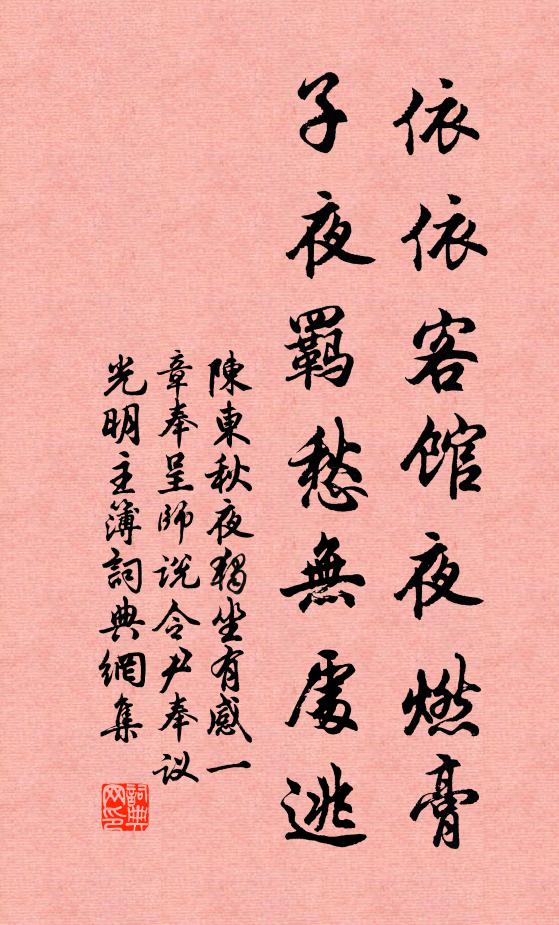 依依客館夜燃膏
子夜羈愁無處逃
陳東秋夜獨坐有感一
章奉呈師說令尹奉议
光明主簿詞典網集
詞典网印